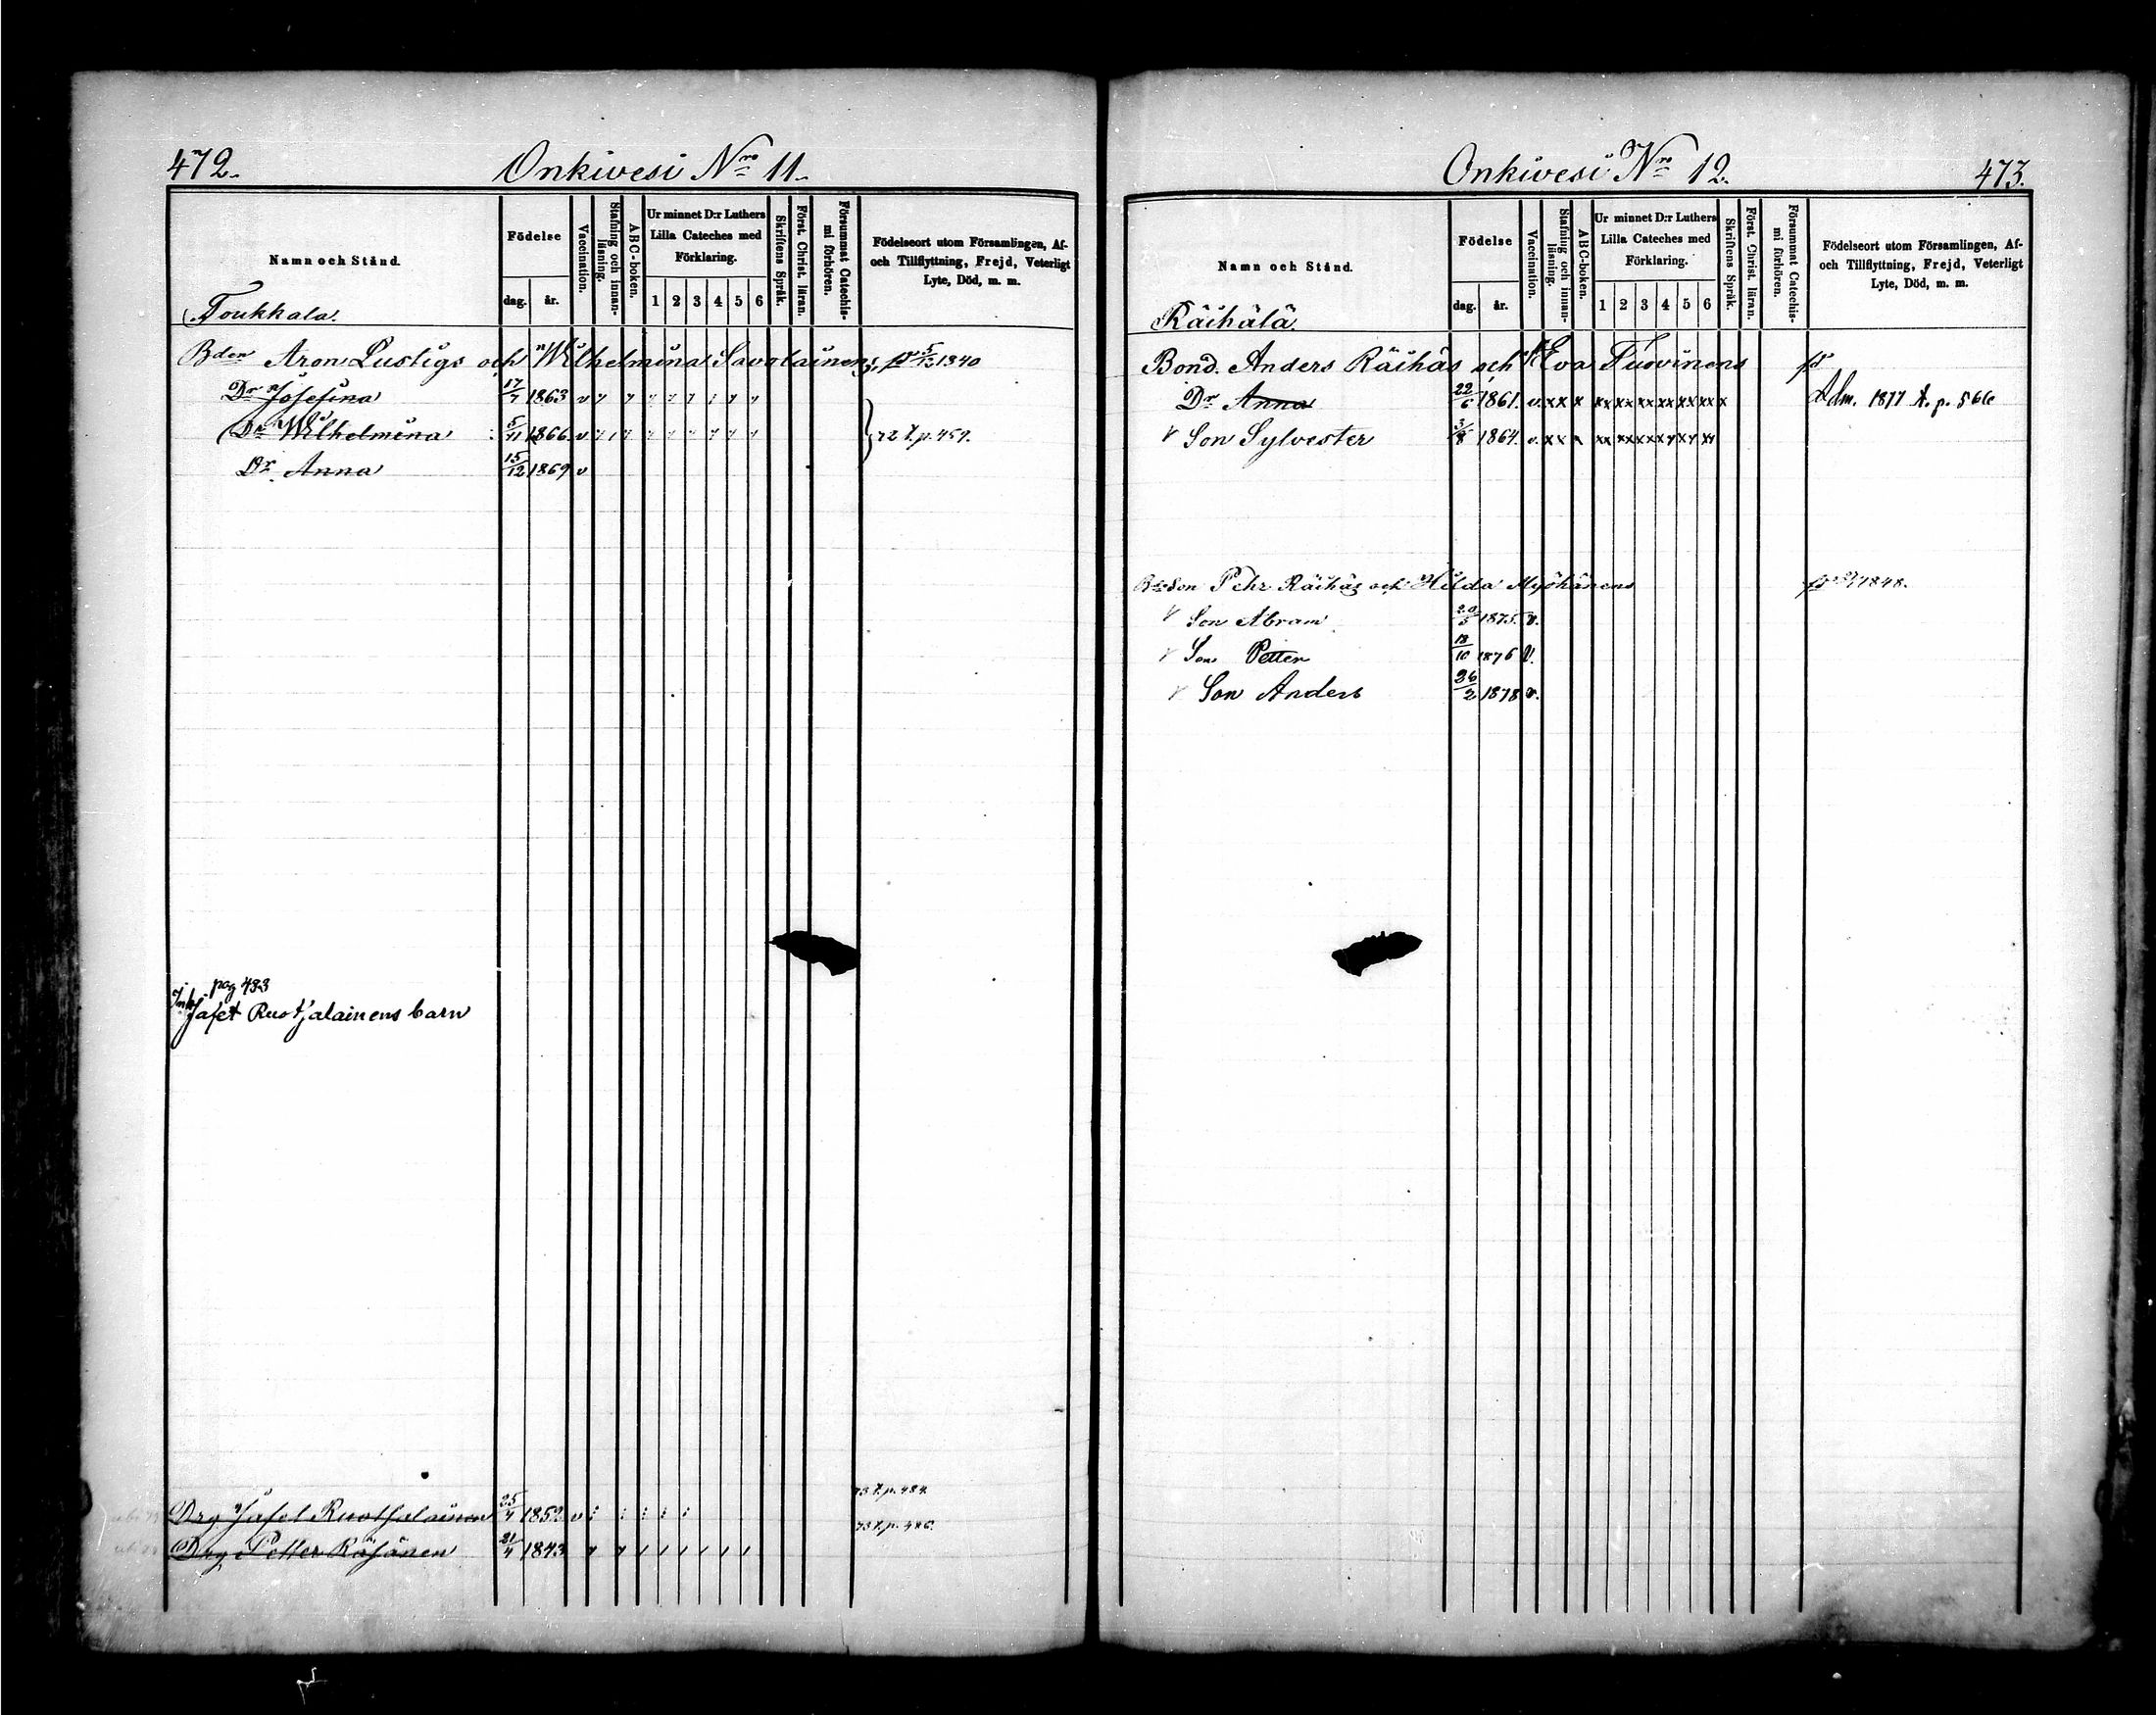 472.
Onkivesi Nro 11.
Namn och Stånd.
Födelse
dag. år.
Vaccination.
Stafning och innanläsning.
ABC-boken.
Ur minnet D:r Luthers Lilla Cateches med Förklaring.
1 2 3 4 5 6
Skriftens Språk.
Först. Christ. läran.
Försummat Catechismi förhören.
Födelseort utom Församlingen, Af- och Tillflyttning, Frejd, Veterligt Lyte, Död, m. m.
Toukkala.
Bden Aron Lustigs och Wilhelmina Savolainens, 5/12 1840
Dr Josefina 17/7 1863 v
Dr Wilhelmina 5/11 1866 v 72 X. p. 459.
Dr Anna 15/12 1869 v
pag 433
Jafet Ruotjalainens barn
73 X. p. 484.
Drg Jafet Ruotsalainen 25/4 1852 v
73 X. p. 486.
Drg Petter Räsänen 21/4 1843
Onkivesi Nro 12.
473.
Namn och Stånd.
Födelse
dag. år.
Vaccination.
Stafning och innanläsning.
ABC-boken.
Ur minnet D:r Luthers Lilla Cateches med Förklaring.
1 2 3 4 5 6
Skriftens Språk.
Först. Christ. läran.
Försummat Catechismi förhören.
Födelseort utom Församlingen, Af- och Tillflyttning, Frejd, Veterligt Lyte, Död, m. m.
Räihälä
Bond. Anders Räihäs och Eva Tuovinens
Dr Anna 22/6 1861. v. xx x xx xx xx xx xx xx x Adm. 1877 A. p. 566
Son Sylvester 3/8 1864. v. xx x
Bdeson Pehr Räihäs och Hilda Myöhänens 1848.
Son Abram 20/5 1875. v.
Son Petter 18/10 1876 v.
Son Anders 26/2 1878 v.